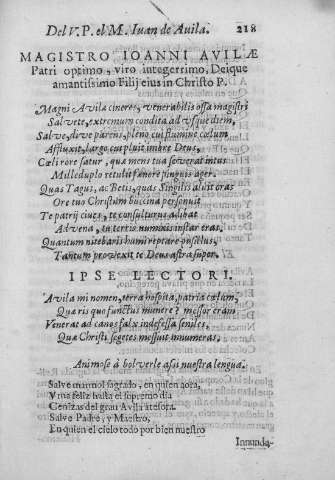 Del V. P. el M. Iuan de Auila. 218
MAGISTRO IOANNI AVILÆ
Patri optimo, viro integerrimo, Deique
amantissimo Filij eius in Christo P.
Magni Avila cineres, venerabilis ossa magistri
Salvete, extremum condita ad vsque diem,
Salve, dive parens, pleno cui flumine cœlum
Affluxit, largo cui pluit imbre Deus,
Cœli rore satur, qua mens tua severat intus
Mille duplo retulit fœnere pinguis ager.
Quas Tagus, ac Betis, quas Singilis aluit oras
Ore tuo Christum buccina personuit
Te patrij cives, te consulturus adibat
Advena, tu terris numinis instar eras,
Quantum nitebaris humi reptare pusillus,
Tantum provexit te Deus astra super.
IPSE LECTORI.
Avila mi nomen, terra hospita, patria cœlum,
Quæris quo functus munere? messor eram
Venerat ad canos falx indefessa seniles,
Qua Christi segetes messuit innumeras,
Animose à bolverle assi nuestra lengua.
Salve marmol sagrado, en quien aora,
Vive feliz hasta el supremo dia
Cenizas del gran Avila atesora.
Salve Padre, y Maestro,
En quien el cielo todo por bien nuestro
Inunda-